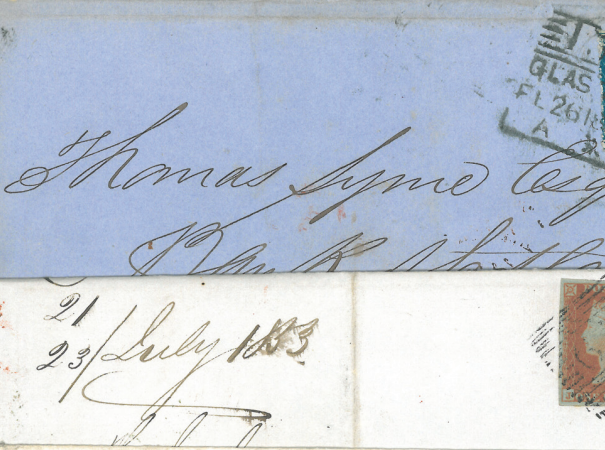 1.
GLAS
FE 26 18
A
Thomas Syme Esq
Bank
21
23 / July 1853